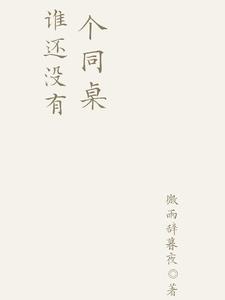 谁还没有
个同桌
微雨辞暮夜◎著